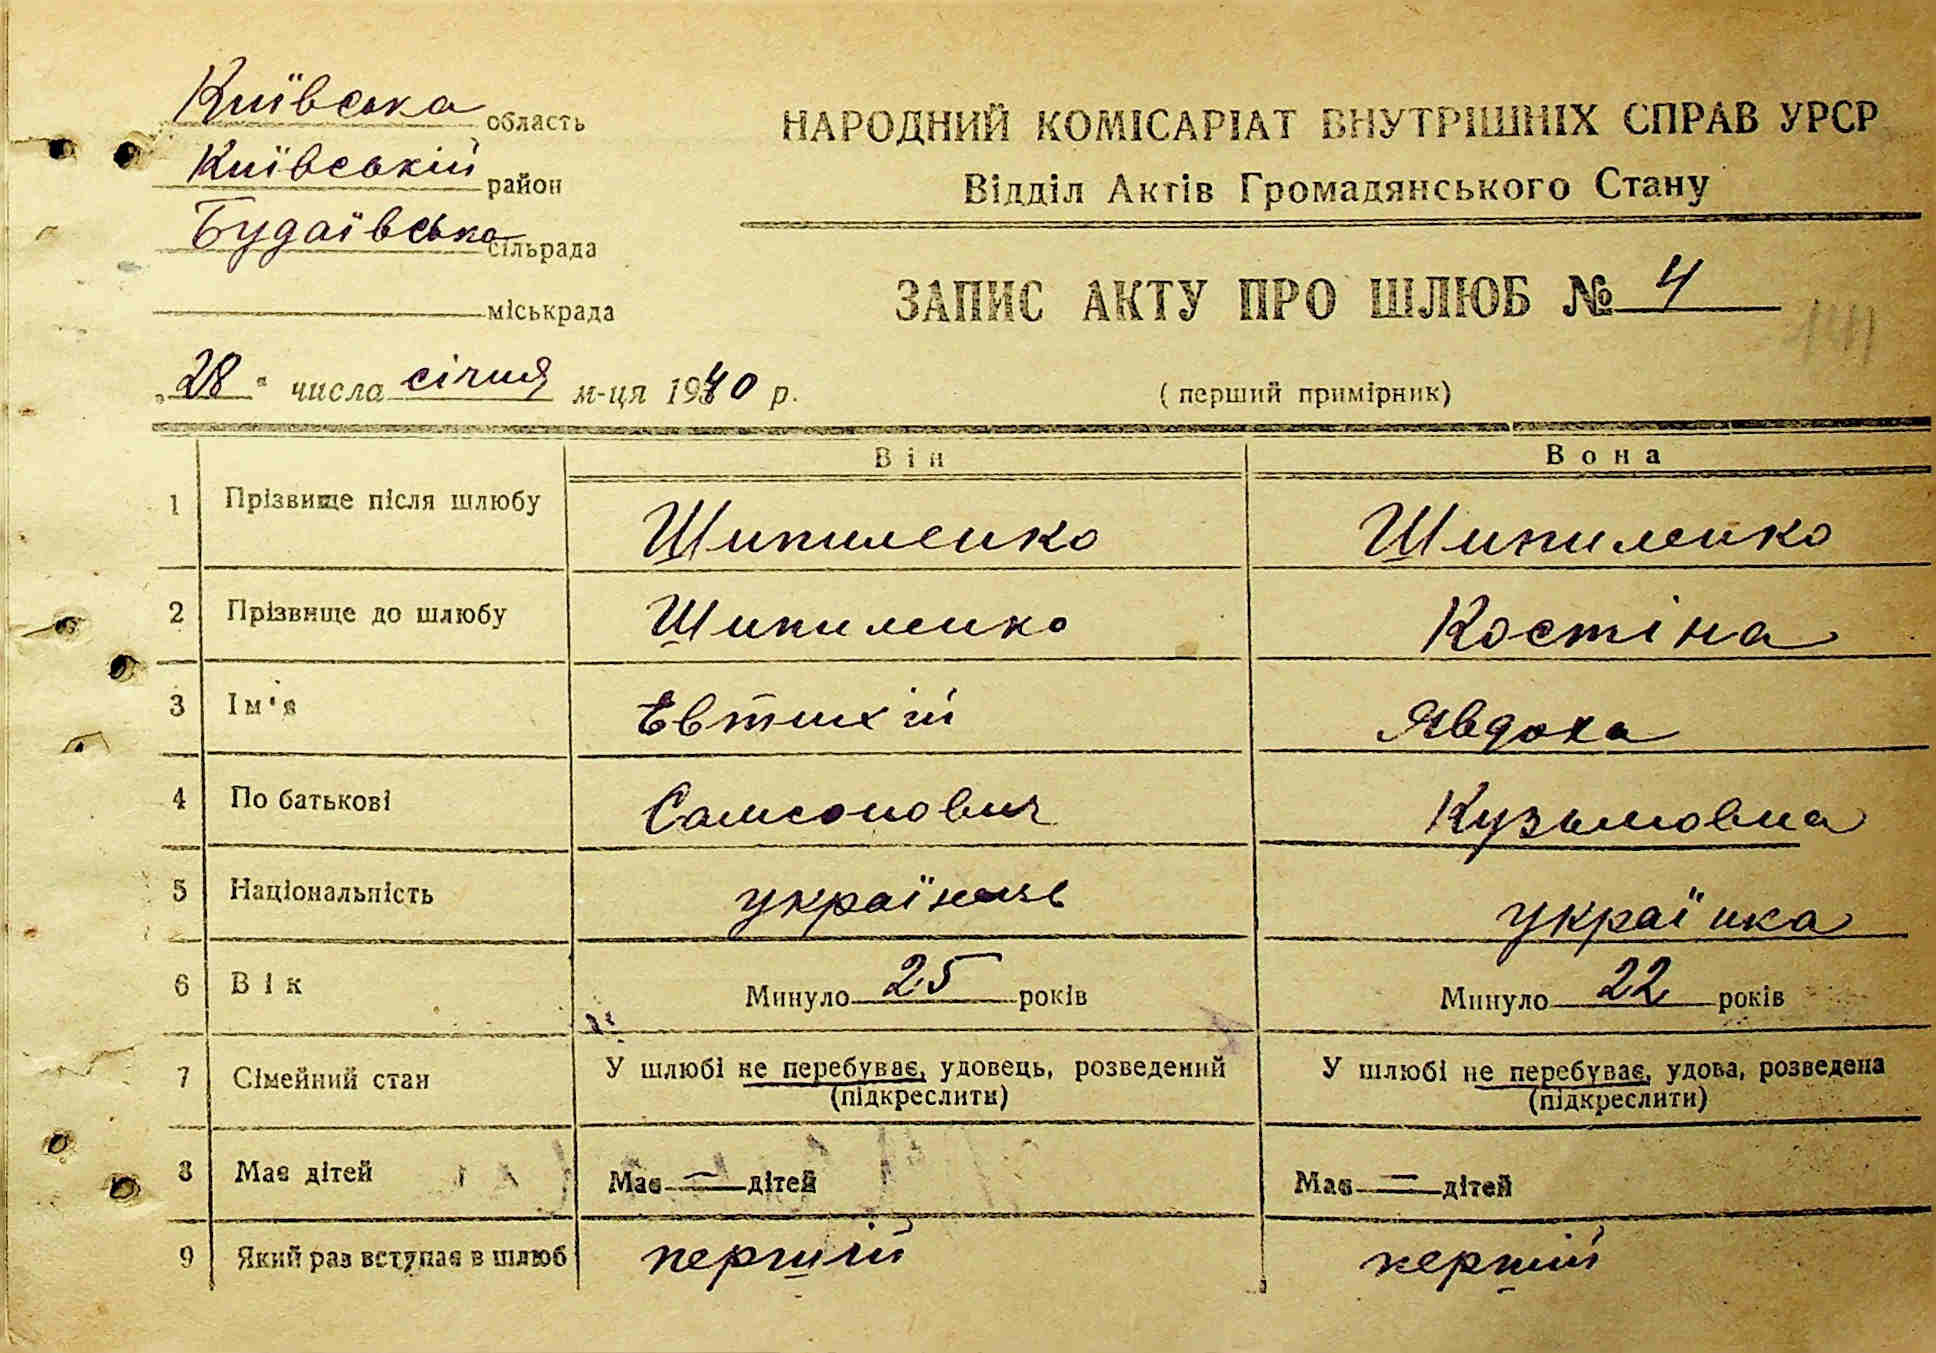 Київська область
Київській район
Будаївська сільрада
міськрада
„28“ числа січня м-ця 1940 р.
НАРОДНИЙ КОМІСАРІАТ ВНУТРІШНІХ СПРАВ УРСР
Відділ Актів Громадянського Стану
ЗАПИС АКТУ ПРО ШЛЮБ № 4
141
(перший примірник)
Він Вона
1 Прізвище після шлюбу Шипиленко Шипиленко
2 Прізвище до шлюбу Шипиленко Костіна
3 Ім'я Євтихій Явдоха
4 По батькові Самсонович Кузьмовна
5 Національність українець українка
6 Вік Минуло 25 років Минуло 22 років
7 Сімейний стан У шлюбі не перебуває, удовець, розведений (підкреслити) У шлюбі не перебуває, удова, розведена (підкреслити)
8 Має дітей Має — дітей Має — дітей
9 Який раз вступає в шлюб першій першій